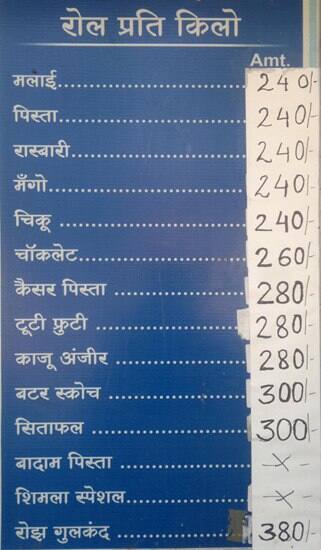 रोल प्रति किलो
Amt.
मलाई........................ 240/-
पिस्ता........................ 240/-
रास्बारी........................ 240/-
मँगो........................ 240/-
चिकू ........................ 240/-
चॉकलेट........................ 260/-
कैसर पिस्ता ................ 280/-
टूटी फ्रुटी .................... 280/-
काजू अंजीर ................ 280/-
बटर स्कोच ................ 300/-
सिताफल .................... 300/-
बादाम पिस्ता ............... -x-
शिमला स्पेशल............... -x-
रोझ गुलकंद ............... 380/-